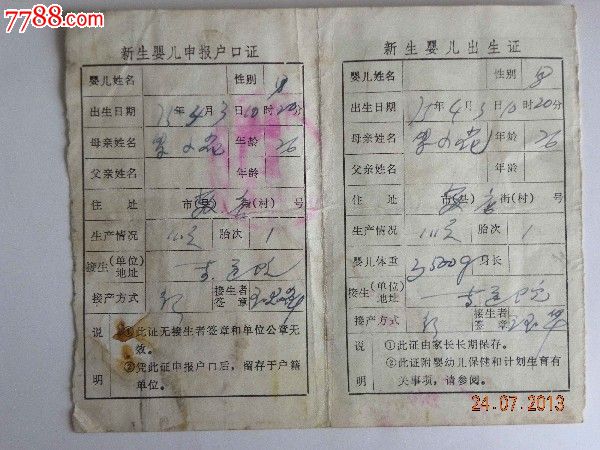 7788.com
新生婴儿申报户口证
婴儿姓名 性别 男
出生日期 75年4月3日10时20分
母亲姓名 年龄 26
父亲姓名 年龄
住址 市(县) 街(村) 号
生产情况 胎次 1
接生(单位)地址
接产方式 接生者签章
说明
①此证无接生者签章和单位公章无
效。
②凭此证申报户口后，留存于户籍
单位。
新生婴儿出生证
婴儿姓名 性别 男
出生日期 75年4月3日10时20分
母亲姓名 年龄 26
父亲姓名 年龄
住址 市(县) 街(村) 号
生产情况 胎次 1
婴儿体重 3500g 身长
接生(单位)地址
接产方式 接生者签章
说明
①此证由家长长期保存。
②此证附婴幼儿保健和计划生育有
关事项，请参阅。
24.07.2013